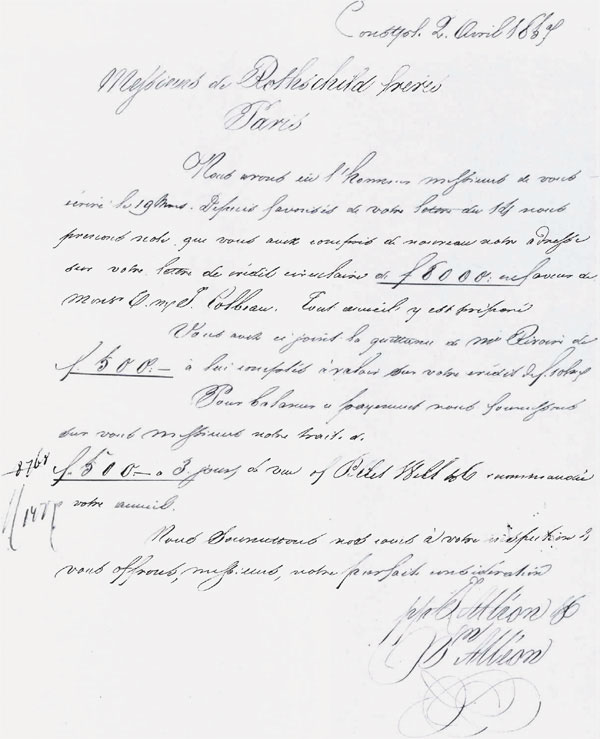 Constple. 2. Avril 1857
Messieurs de Rothschild frères
Paris
Nous avons eu l'honneur messieurs de vous
écrire le 19 . Depuis favorisés de votre lettre du 14 nous
prenons note que vous avez compris de nouveau notre adresse
sur votre lettre de crédit circulaire de f 6000.- en faveur de
Monsr E. Colbeau. Tout accueil y est préparé
Vous avez ci joint la quittance de mr de
f. 500.- à lui comptés à valoir sur votre crédit de f.
Pour balance ce payement nous fournissons
sur vous messieurs notre traite de
f. 500.- à 3 jours de vue o/ Pillet Will & C recommandée
votre accueil.
Nous soumettons nos cours à votre inspection &
vous offrons, messieurs, notre parfaite considération
ppon Alléon & C
Alléon